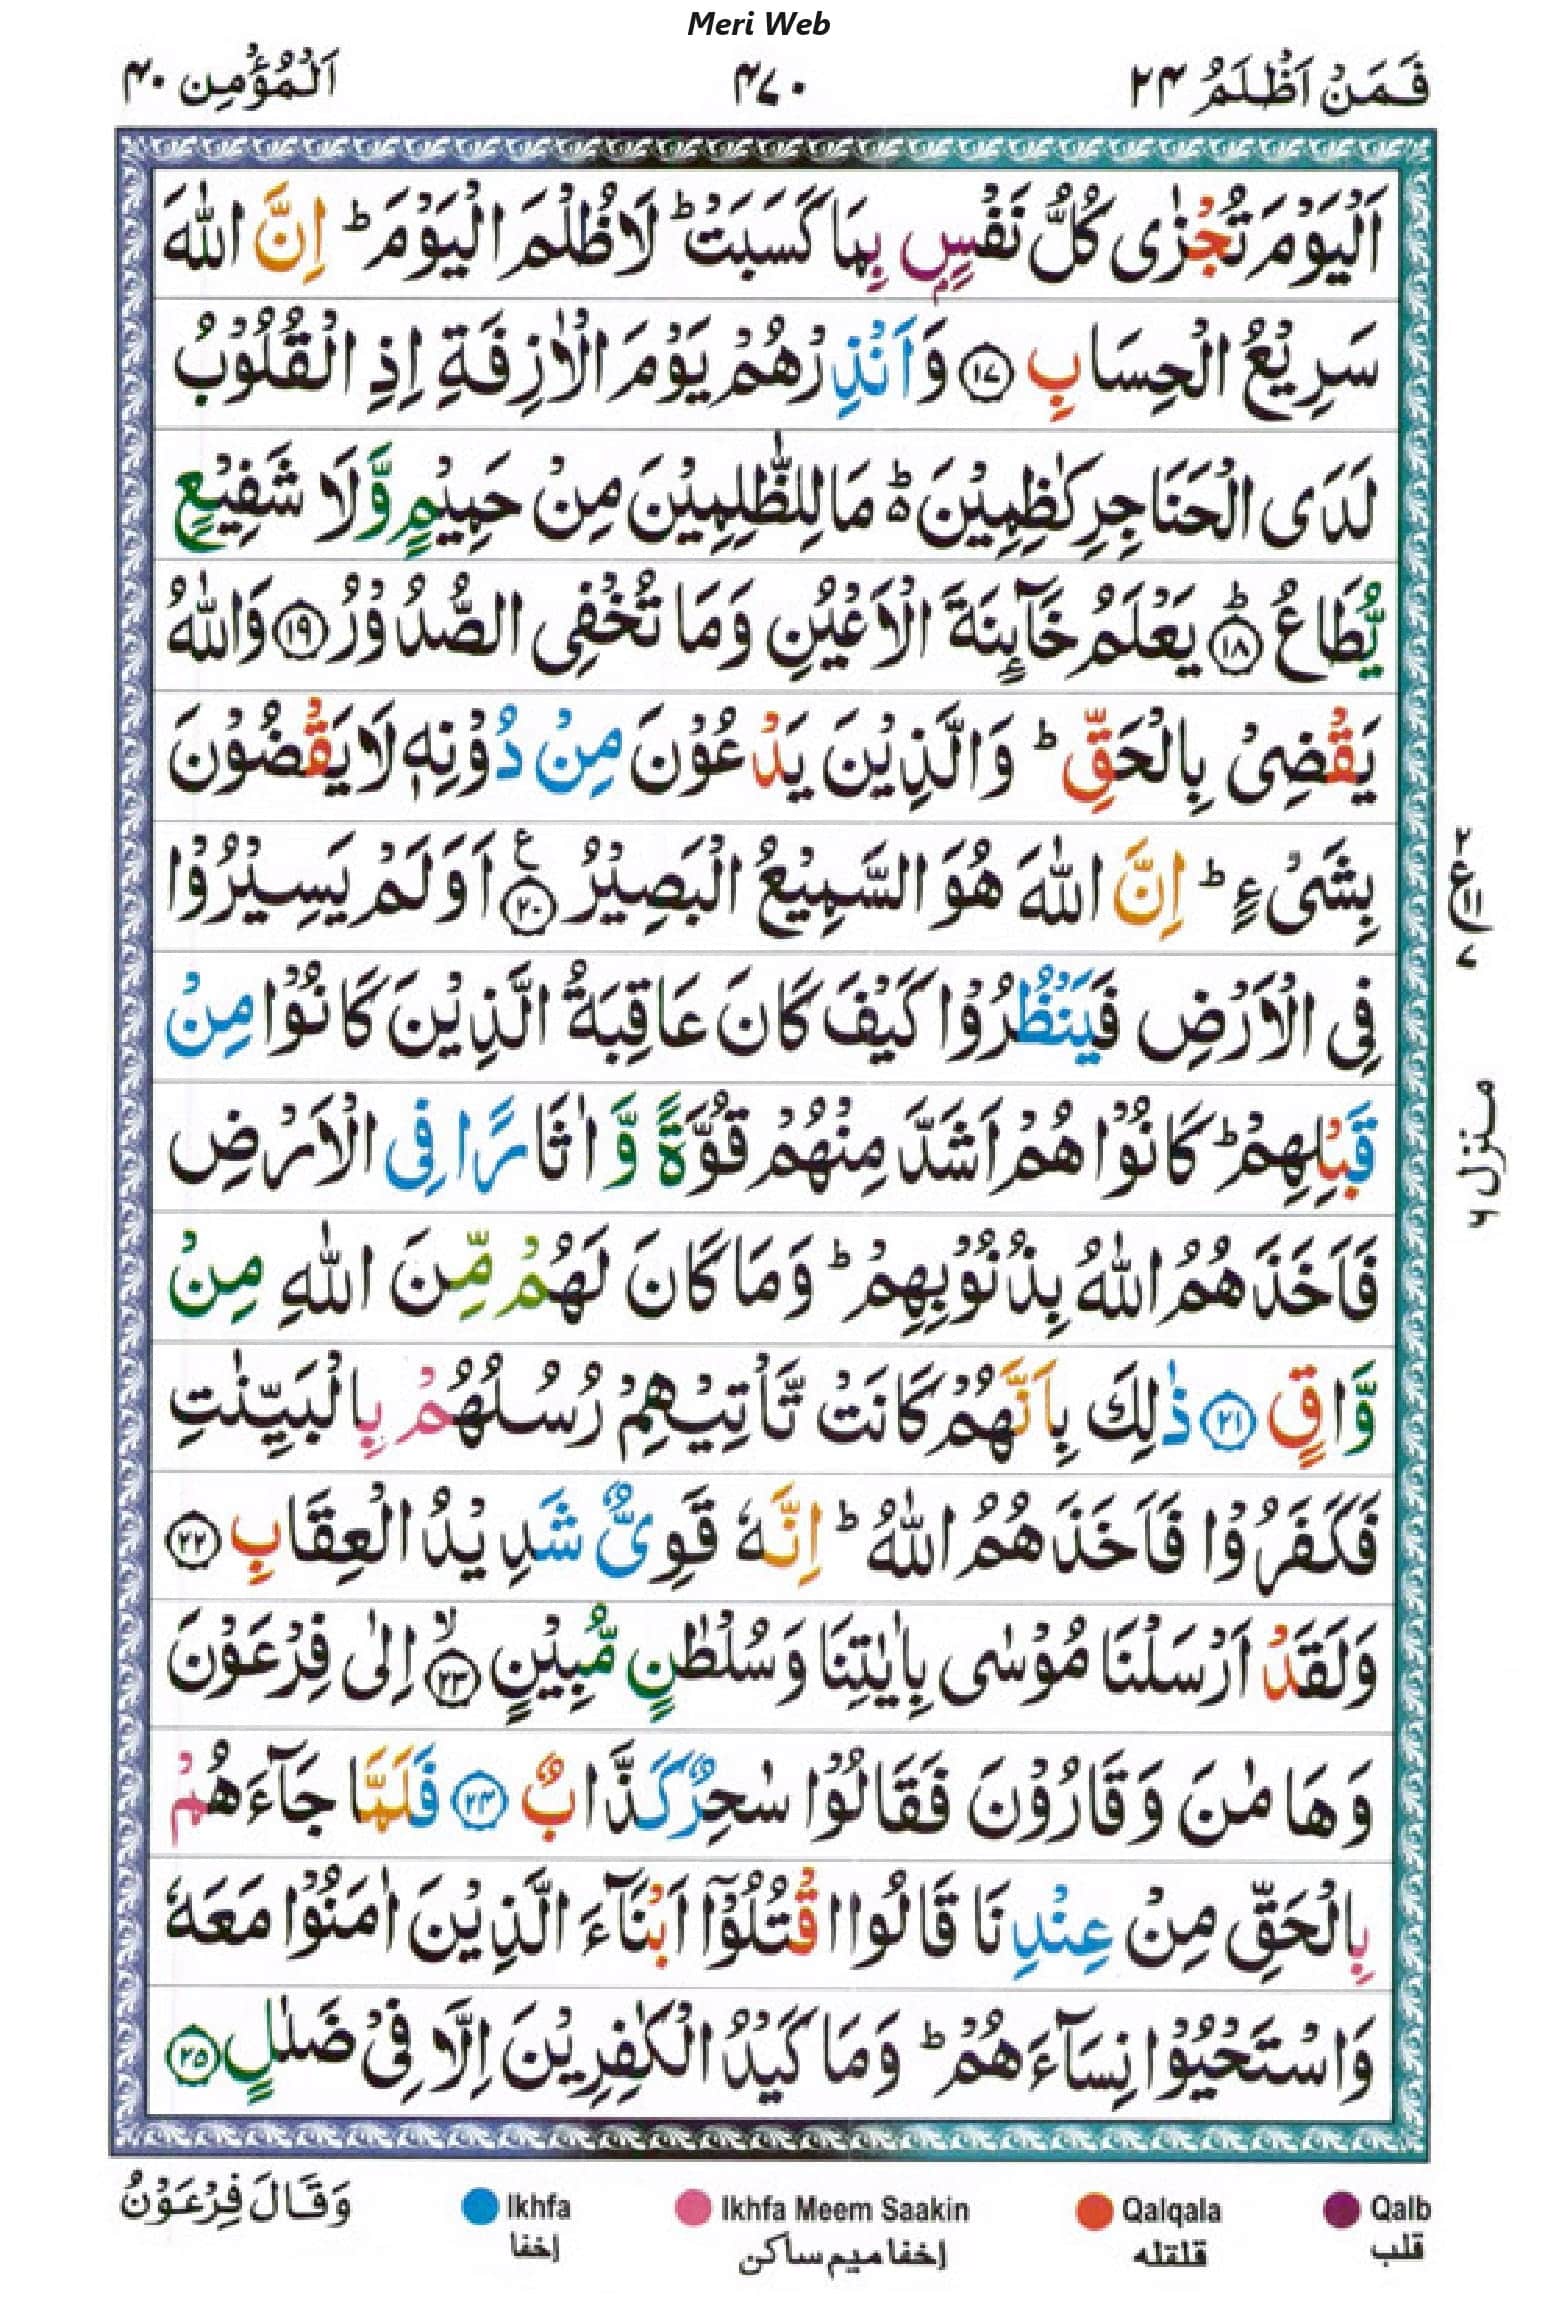 Meri Web
فَمَنْ اَظْلَمُ ۲۴ ۴۷۰ اَلْمُؤْمِن ۴۰
اَلْيَوْمَ تُجْزٰى كُلُّ نَفْسٍۭ بِمَا كَسَبَتْ ؕ لَا ظُلْمَ الْيَوْمَ ؕ اِنَّ اللّٰهَ
سَرِيْعُ الْحِسَابِ ۝۱۷ وَاَنْذِرْهُمْ يَوْمَ الْاٰزِفَةِ اِذِ الْقُلُوْبُ
لَدَى الْحَنَاجِرِ كٰظِمِيْنَ ؕ۬ مَا لِلظّٰلِمِيْنَ مِنْ حَمِيْمٍ وَّلَا شَفِيْعٍ
يُّطَاعُ ؕ۝۱۸ يَعْلَمُ خَآىِٕنَةَ الْاَعْيُنِ وَمَا تُخْفِى الصُّدُوْرُ ۝۱۹ وَاللّٰهُ
يَقْضِىْ بِالْحَقِّ ؕ وَالَّذِيْنَ يَدْعُوْنَ مِنْ دُوْنِهٖ لَا يَقْضُوْنَ
بِشَىْءٍ ؕ اِنَّ اللّٰهَ هُوَ السَّمِيْعُ الْبَصِيْرُ ۝۲۰ ع اَوَلَمْ يَسِيْرُوْا
۲ ع ۱۱ ۷
فِى الْاَرْضِ فَيَنْظُرُوْا كَيْفَ كَانَ عَاقِبَةُ الَّذِيْنَ كَانُوْا مِنْ
قَبْلِهِمْ ؕ كَانُوْا هُمْ اَشَدَّ مِنْهُمْ قُوَّةً وَّاٰثَارًا فِى الْاَرْضِ
منزل ۶
فَاَخَذَهُمُ اللّٰهُ بِذُنُوْبِهِمْ ؕ وَمَا كَانَ لَهُمْ مِّنَ اللّٰهِ مِنْ
وَّاقٍ ۝۲۱ ذٰلِكَ بِاَنَّهُمْ كَانَتْ تَّاْتِيْهِمْ رُسُلُهُمْ بِالْبَيِّنٰتِ
فَكَفَرُوْا فَاَخَذَهُمُ اللّٰهُ ؕ اِنَّهٗ قَوِىٌّ شَدِيْدُ الْعِقَابِ ۝۲۲
وَلَقَدْ اَرْسَلْنَا مُوْسٰى بِاٰيٰتِنَا وَسُلْطٰنٍ مُّبِيْنٍ ۙ۝۲۳ اِلٰى فِرْعَوْنَ
وَهَامٰنَ وَقَارُوْنَ فَقَالُوْا سٰحِرٌ كَذَّابٌ ۝۲۴ فَلَمَّا جَآءَهُمْ
بِالْحَقِّ مِنْ عِنْدِنَا قَالُوا اقْتُلُوْۤا اَبْنَآءَ الَّذِيْنَ اٰمَنُوْا مَعَهٗ
وَاسْتَحْيُوْا نِسَآءَهُمْ ؕ وَمَا كَيْدُ الْكٰفِرِيْنَ اِلَّا فِىْ ضَلٰلٍ ۝۲۵
وَقَالَ فِرْعَوْنُ
Ikhfa Ikhfa Meem Saakin Qalqala Qalb
اخفا اخفا میم ساکن قلقله قلب